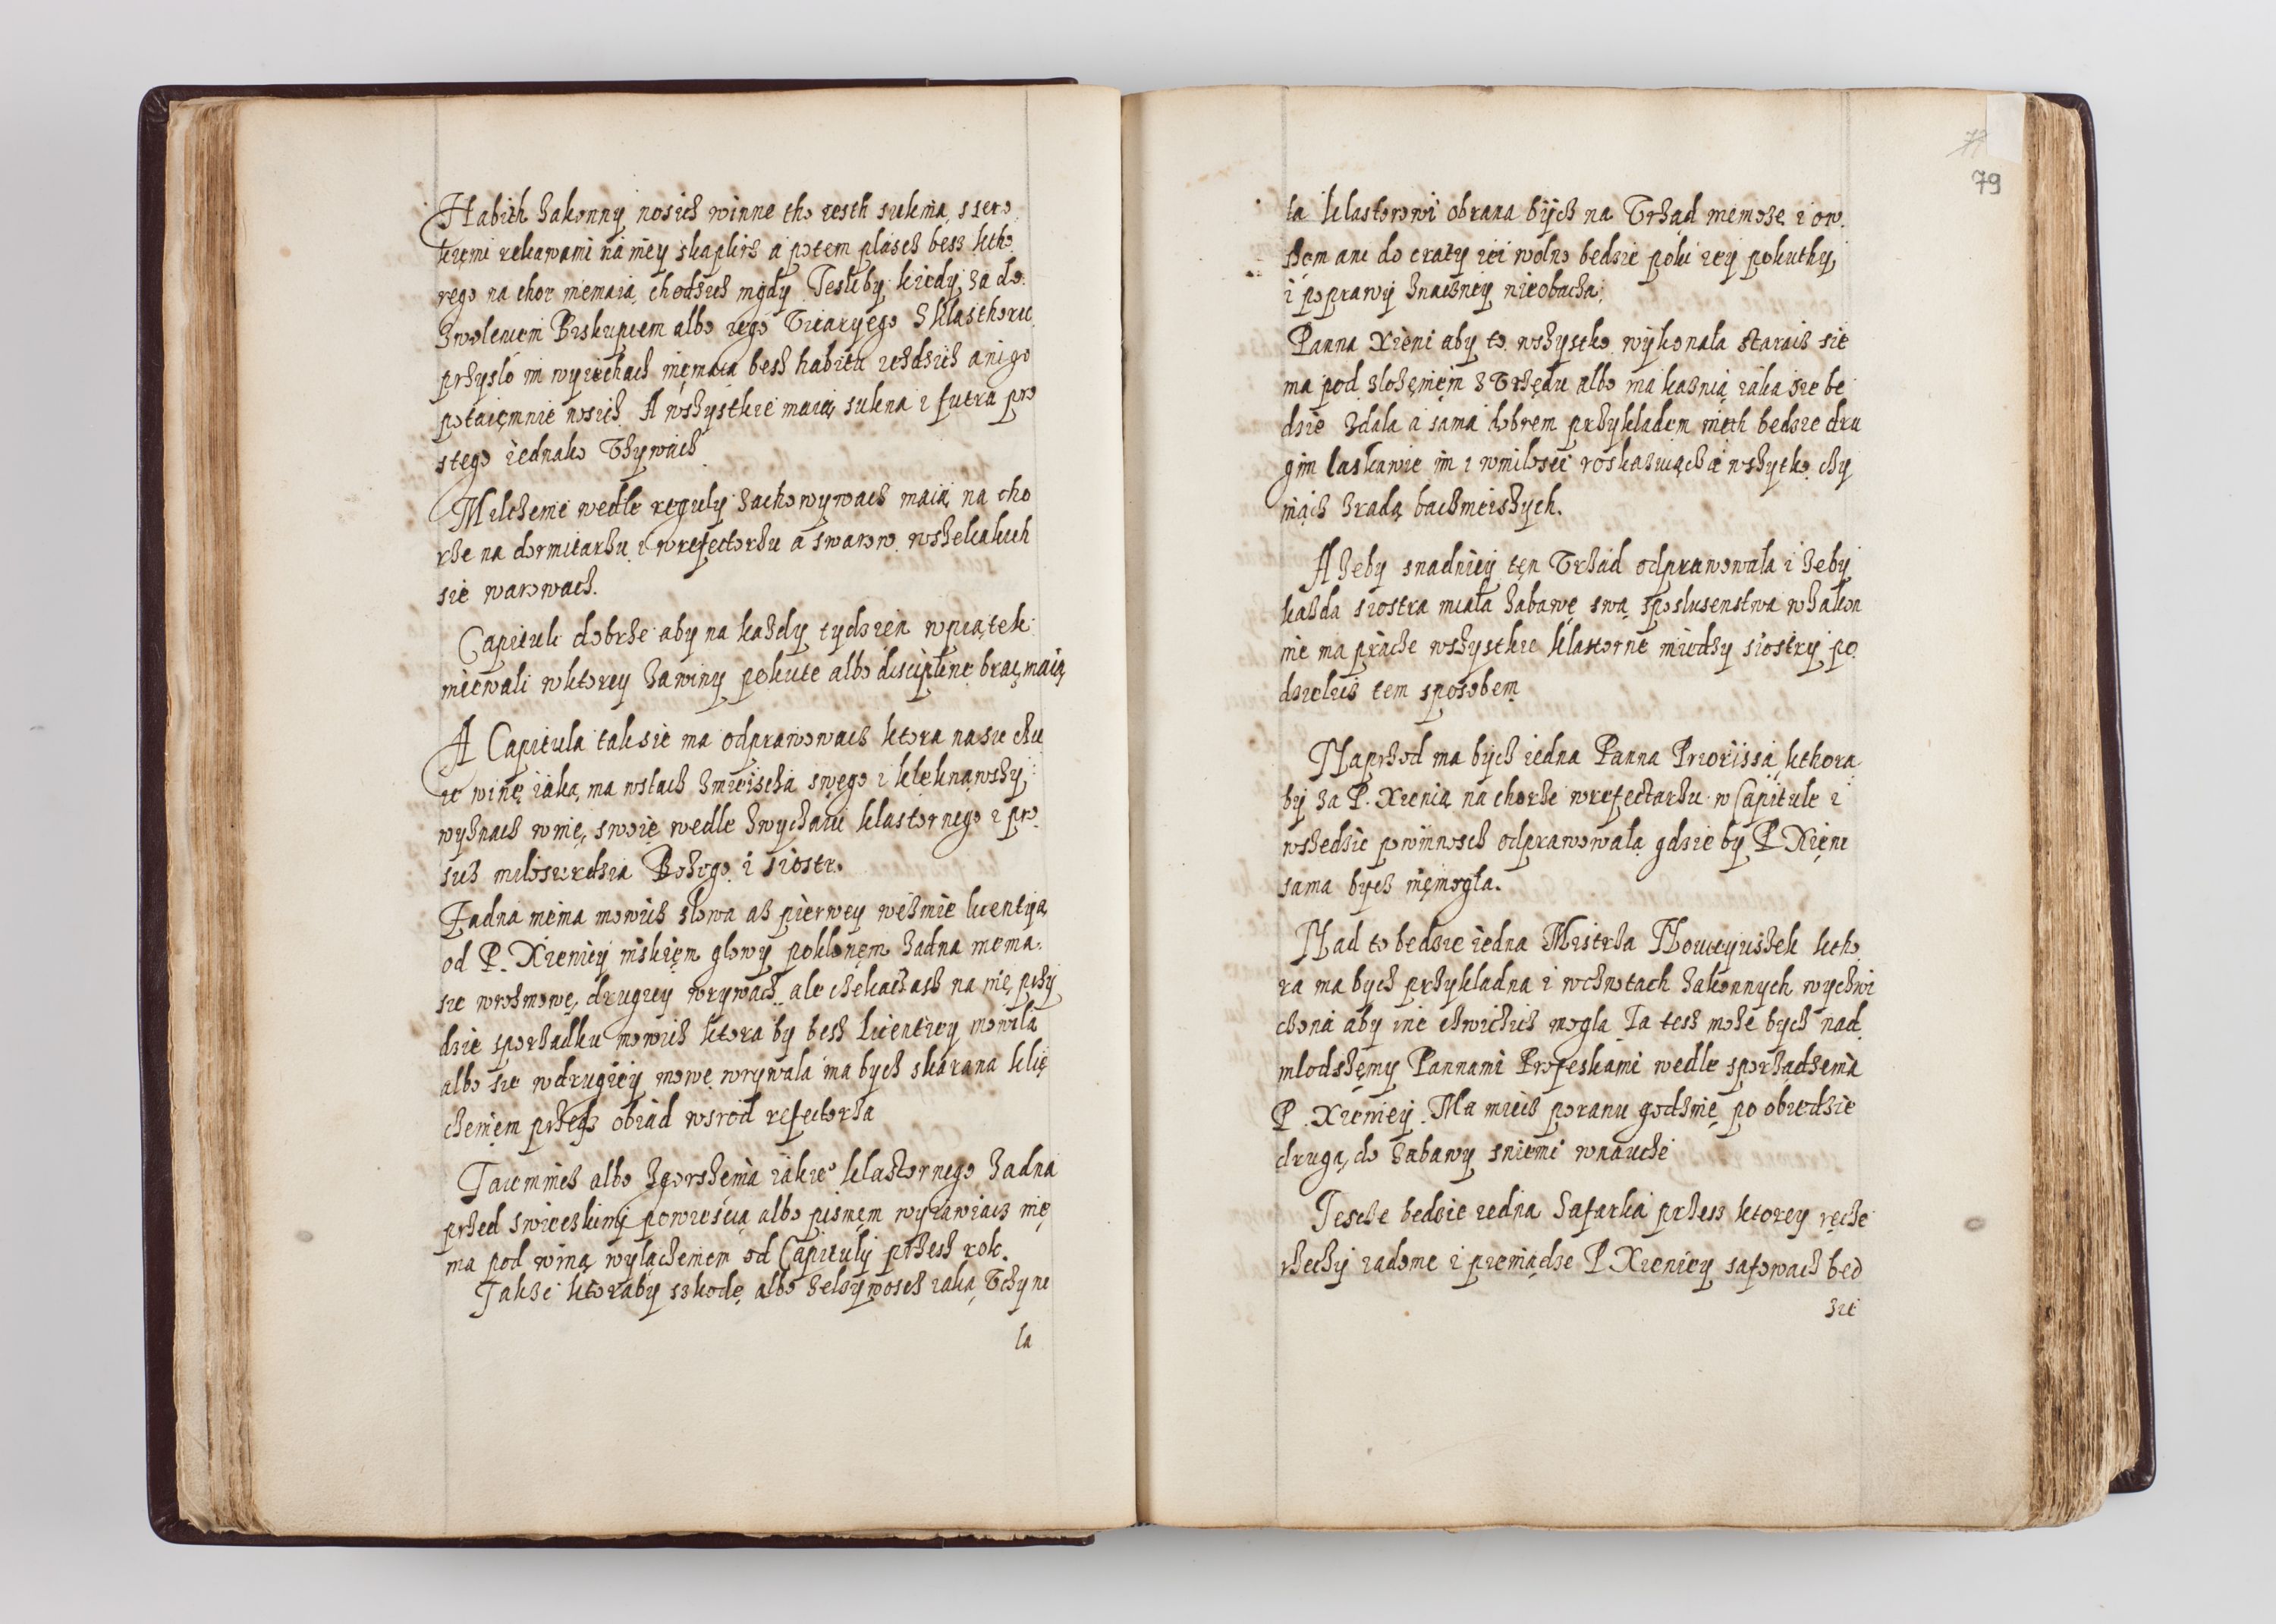 Habith Zakonny nosicz winne tho iesth suknia, ssero
kiemi rekawami na niey skaplirz a potem plascz bess ktho
rego na chor niemaia chodzicz nigdy Iesliby kiedy za do
zwoleniem Biskupiem albo iego Vicaryego z klasthoru
przyslo im wyiechacz niemaia besz habitu iezdzicz ani go
potaiemnie nosicz A wszystkie maia sukna i futra pro
stego iednako Vzywacz
Milczenie wedle reguly zachowywacz maia na cho
rze na dormitarzu i wrefectorzu a swarow wszelakich
sie warowacz.
Capituli dobrze aby na kazdy tydzien wpiatek
miewali wktorey zawiny pokute albo disciplinę brac maia
A Capitula tak sie ma odprawowacz ktora nasie czu
ie winę iaka ma wstacz zmieiscza swego i klęknawszy
wyznacz winę swoię wedle zwyczaiu klastornego i pro
sicz milosierdzia Bozego i siostr.
Zadna niema mowicz slowa asz pierwey weżmie licentyą
od P. Xieniey niskiem glowy poklonem zadna niema
sie wrozmowę drugiey wrywacz ale czekacz asz na nię przy
dzie sporzadku mowicz ktora by besz licentiey mowila
albo sie wdrugiey mowę wrywala ma bycz skarana klę
czeniem przesz obiad wsrod refectorza
Taiemnicz albo zgorszenia iakie° klastornego zadna
przed swieczkimi powiescią albo pismem wyiawiacz nie
ma pod winą wylączeniem od Capituly przesz rok.
Takze ktoraby szkodę albo zelzywoscz iaka Vczyni
la
la klastorowi obrana bycz na Vrzad niemoze i ow
szem ani do craty iei wolno bedzie poki iey pokuthy
i poprawy znaczney nieobacza
Panna Xieni aby to wszystko wykonala staracz sie
ma pod zlożeniem z Vrzędu albo ina kaznią iaka sie be
dzie zdala a sama dobrem przykladem niech bedzie dru
gim laskawie im i wmilosci roskazuiącz a wszytko czy
niącz zradą baczmeiszych.
A zeby snadniey ten Vrzad odprawowala i zeby
kazda siostra miala zabawę swą sposlusenstwa wzakon
nie ma pracze wszystkie klastorne miedzy siostry po
dzielicz tem sposobem
Naprzod ma bycz iedna Panna Priorissa kthora
by za P. Xienią na chorze wrefectarzu w Capitule i
wszedzie powinnoscz odprawowala gdzie by P. Xieni
sama bycz niemogla.
Nad to bedzie iedna Mistrza Nowicyuszek ktho
ra ma bycz przykladna i wcznotach zakonnych wyczwi
czona aby inie czwiczicz mogla Ta tesz moze bycz nad
mlodszemy Pannami Profeskami wedle sporzadzenia
P. Xieniey. Ma miecz poranu godzinę po obiedzie
drugą do zabawy sniemi wnaucze
Iescze bedzie iedna Safarka przess ktorey ręcze
rzeczy iadome i pieniądze P Xieniey safowacz bed
zie
79